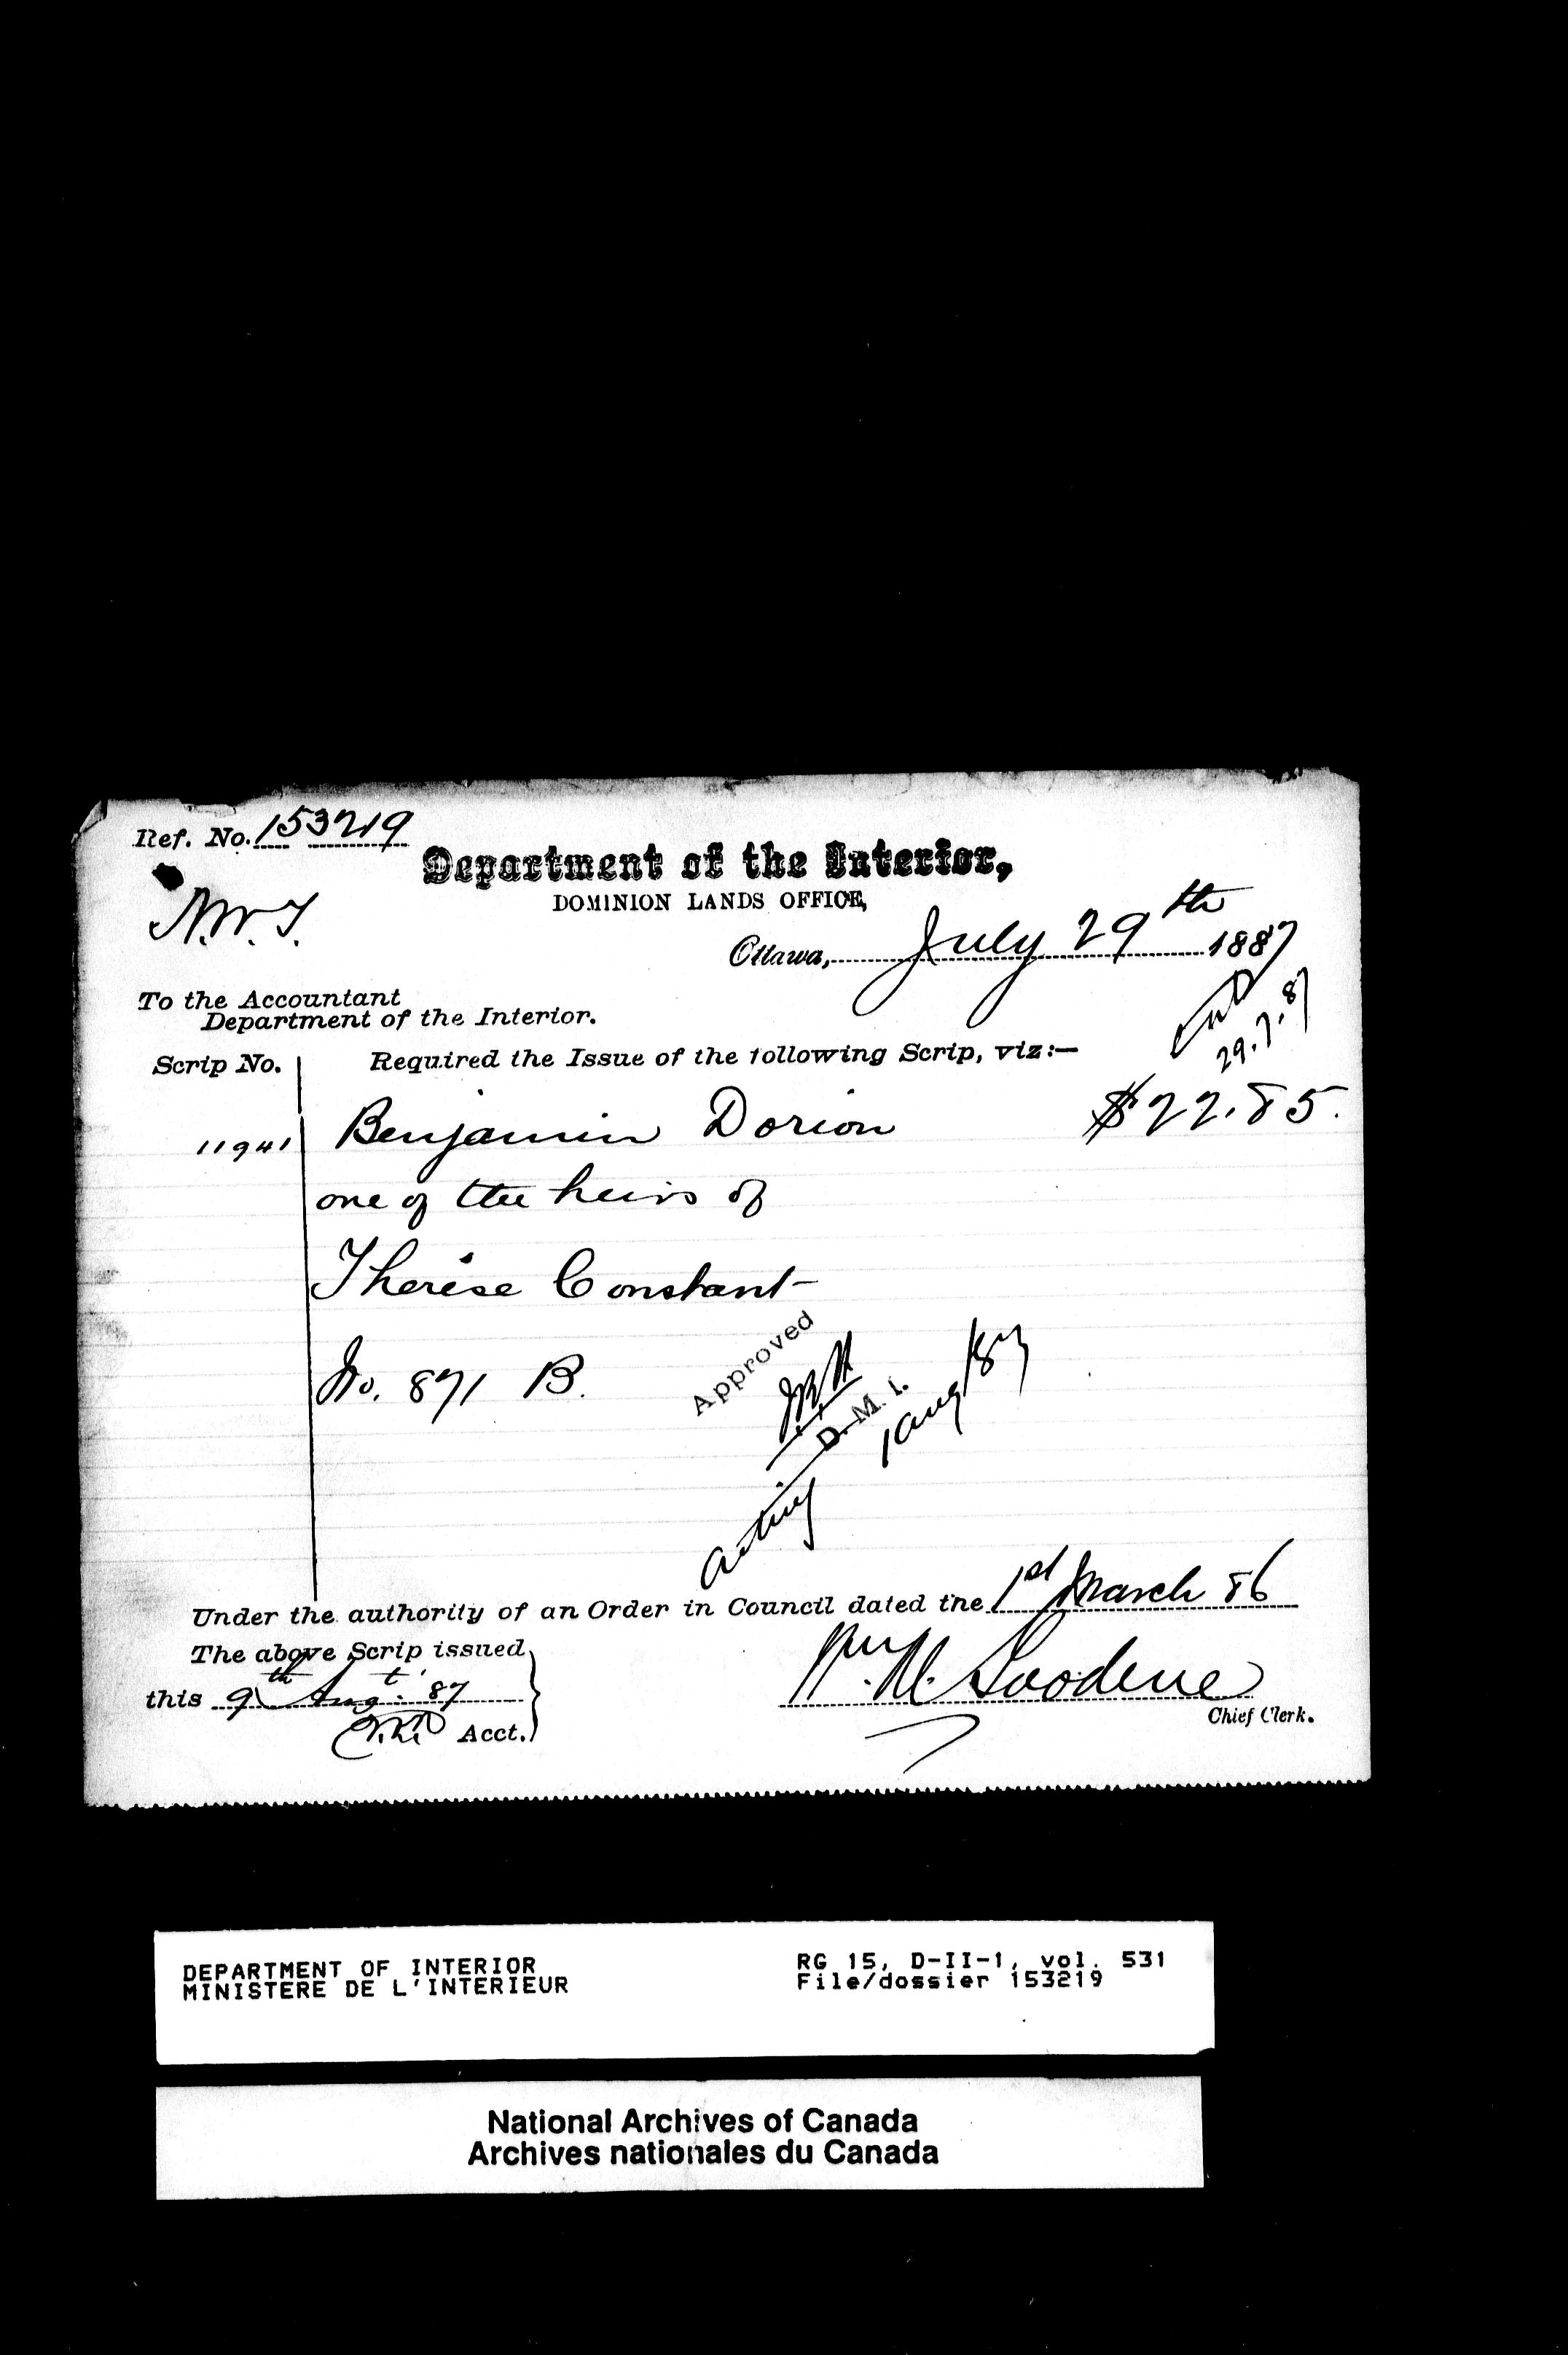 Ref. No. 153219
Department of the Interior,
DOMINION LANDS OFFICE,
N.W.T.
Ottawa, July 29th 1887
To the Accountant
Department of the Interior.
29.7.87
Scrip No. Required the Issue of the following Scrip, viz:—
11941 Benjamin Dorion $22.85.
one of the heirs of
Therèse Constant
No. 871 B.
Approved
D. M. I.
Acting
1 Aug/87
Under the authority of an Order in Council dated the 1st March 86
The above Scrip issued
this 9th Augt. 87
Acct.
Wm. M. Goodeve
Chief Clerk.
DEPARTMENT OF INTERIOR
MINISTERE DE L'INTERIEUR
RG 15, D-II-1, vol. 531
File/dossier 153219
National Archives of Canada
Archives nationales du Canada